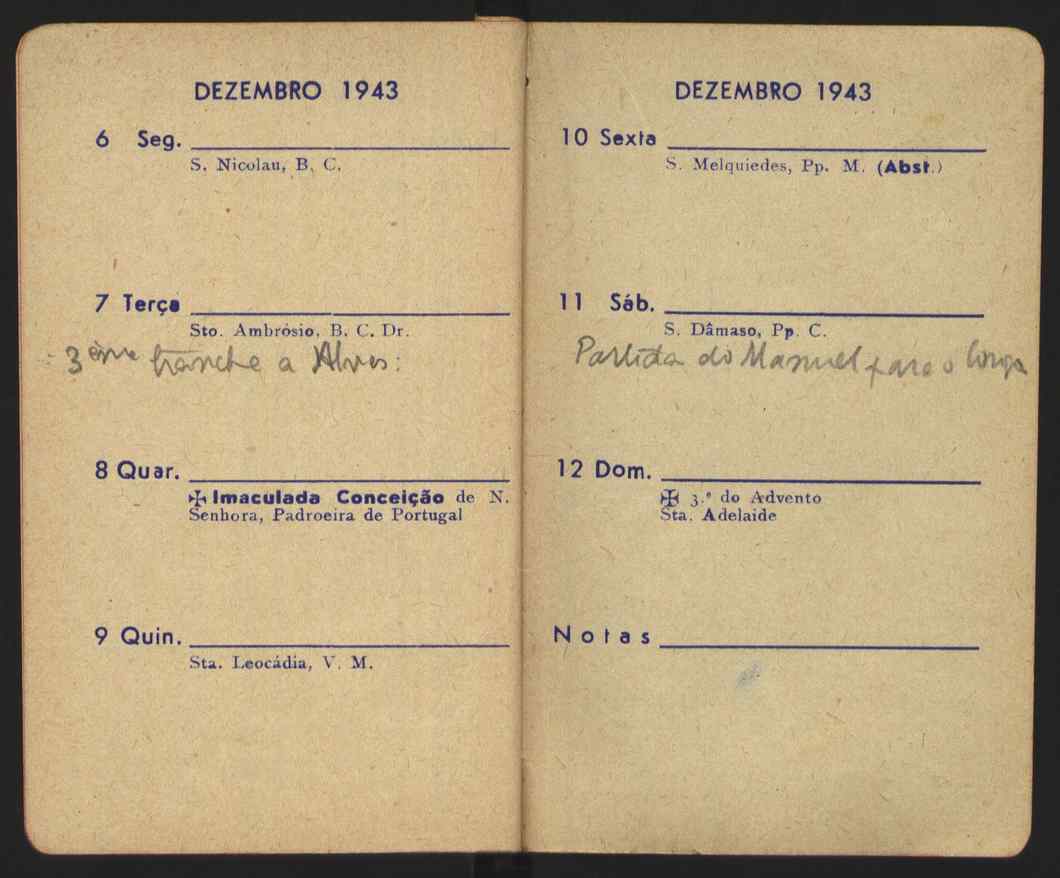 DEZEMBRO 1943
6 Seg.
S. Nicolau, B. C.
7 Terça
Sto. Ambrósio, B. C. Dr.
3ème tranche a Alves:
8 Quar.
✠ Imaculada Conceição de N.
Senhora, Padroeira de Portugal
9 Quin.
Sta. Leocádia, V. M.
DEZEMBRO 1943
10 Sexta
S. Melquiedes, Pp. M. (Abst.)
11 Sáb.
S. Dâmaso, Pp. C.
Partida do Manuel para o
12 Dom.
✠ 3.º do Advento
Sta. Adelaide
Notas